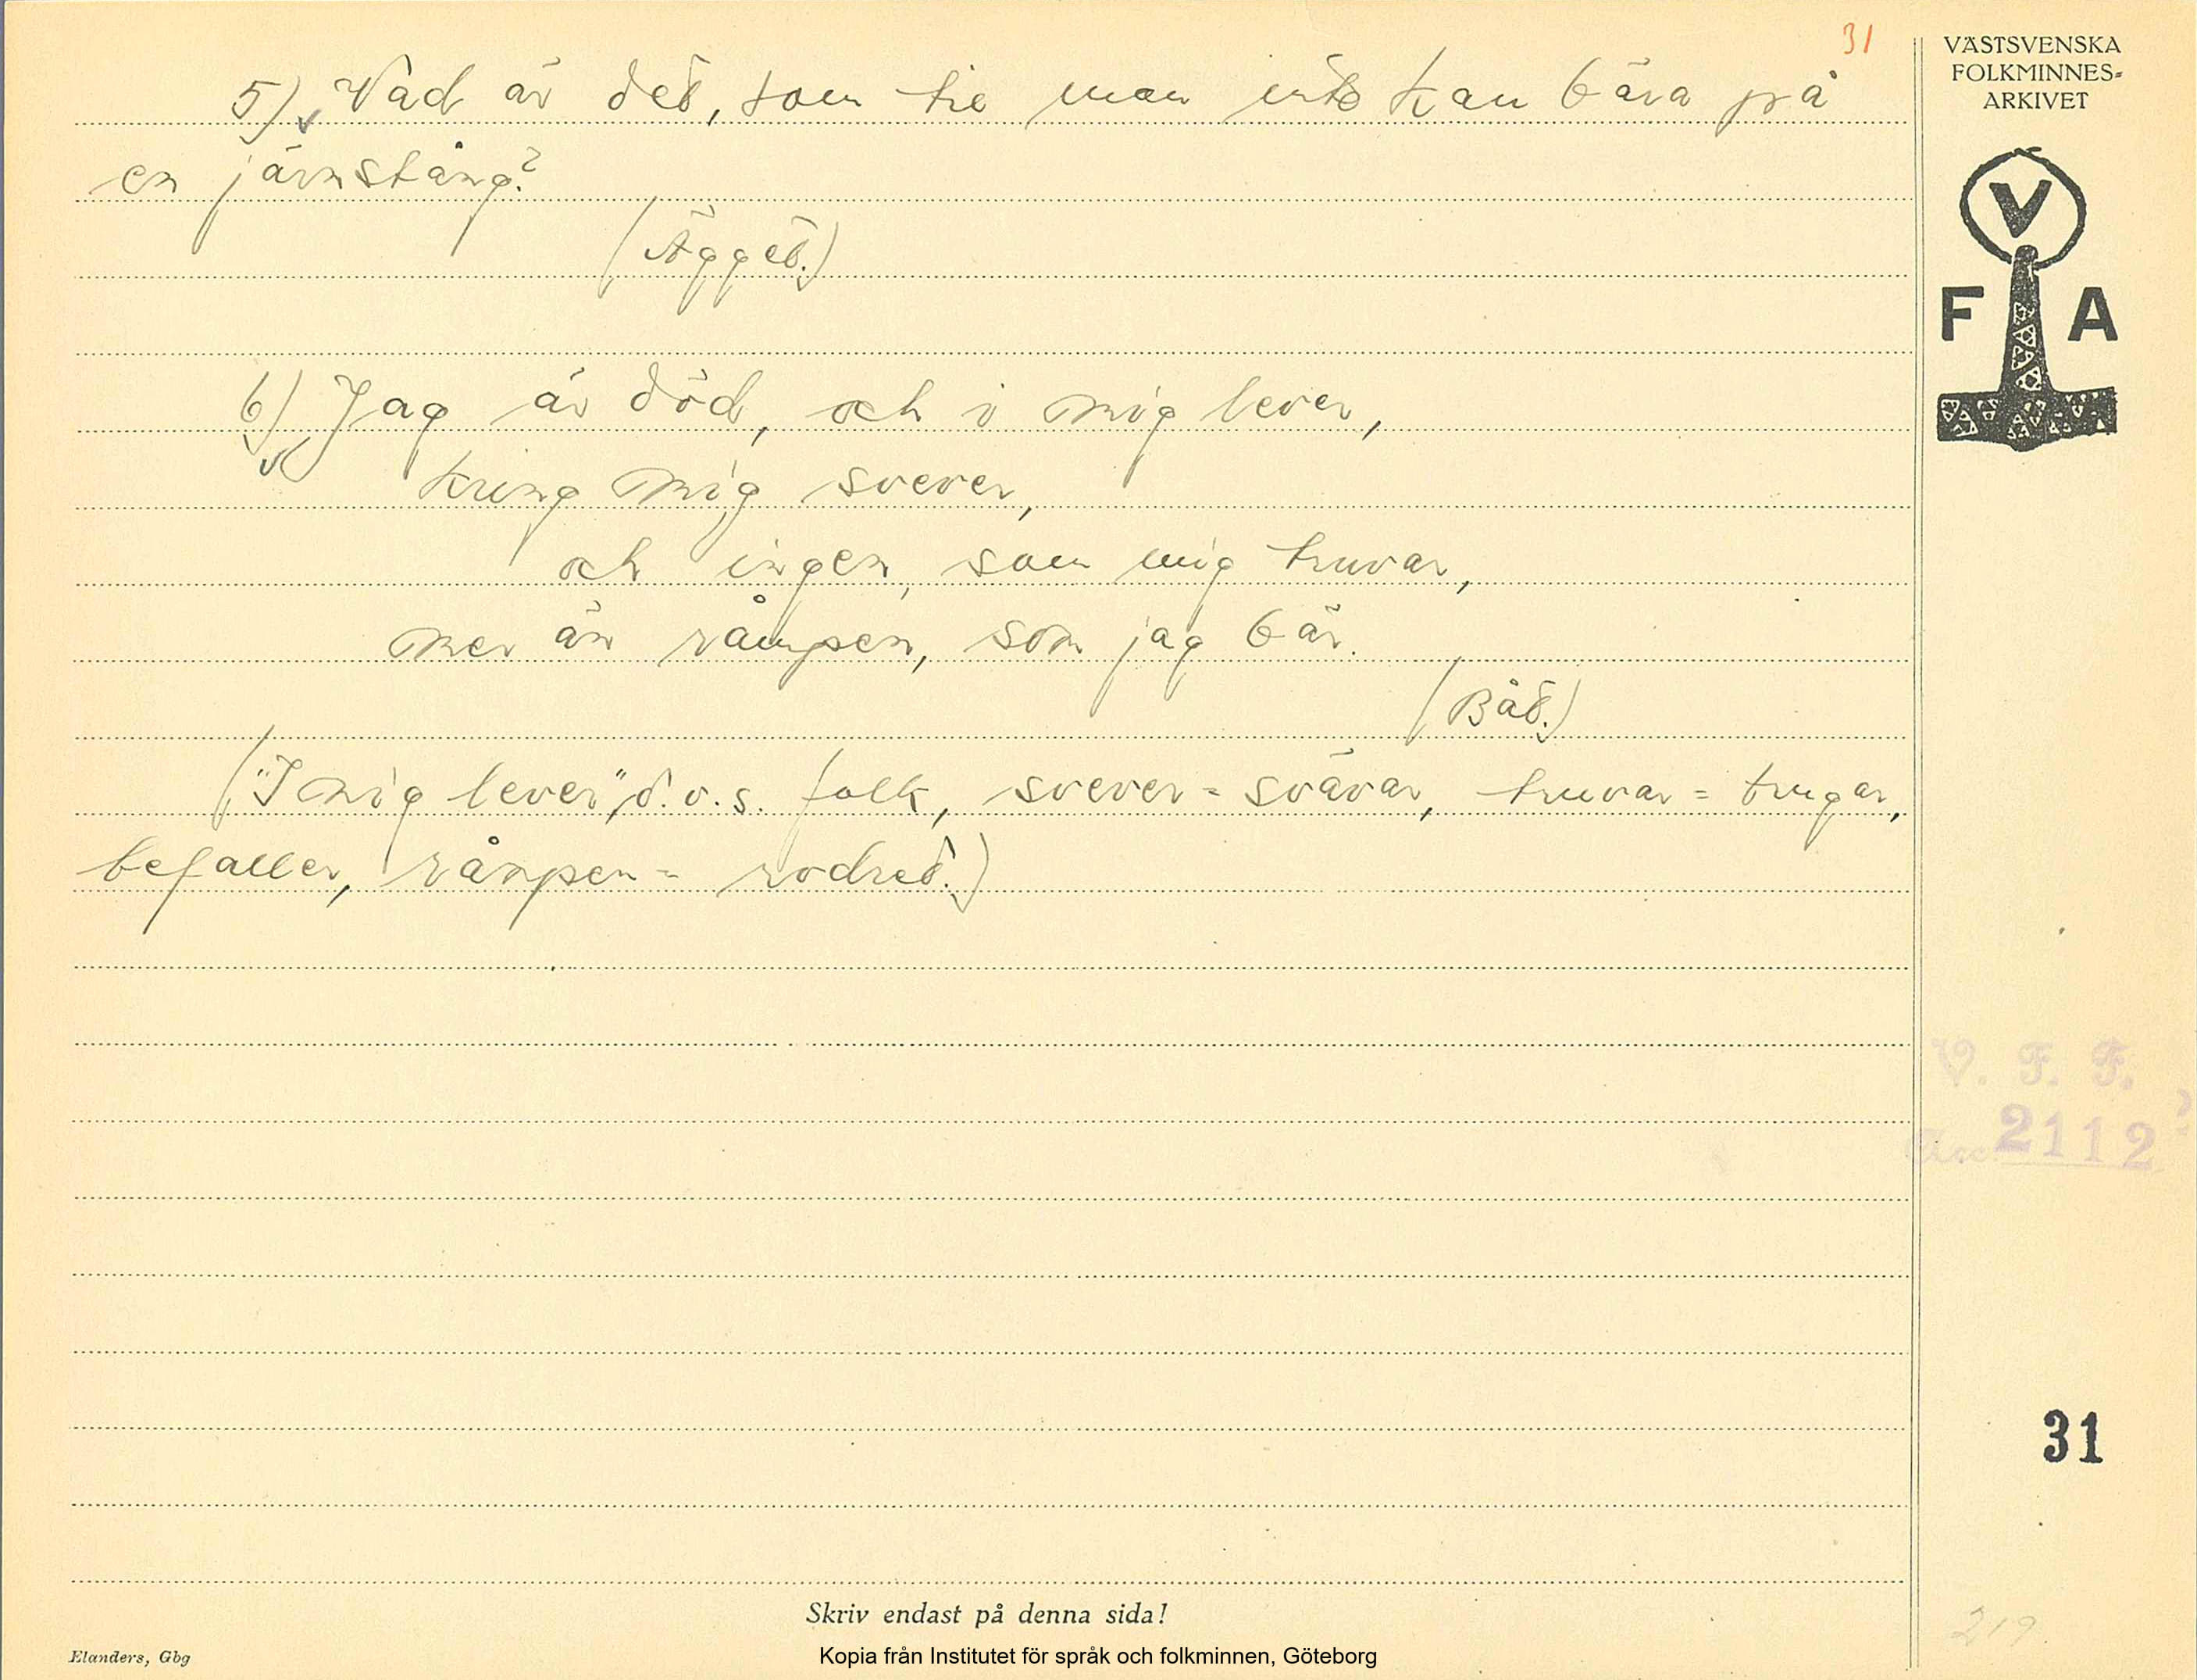 31
5) Vad är det, som tie man inte kan bära på
en järnstång?
(Ägget.)
6) Jag är död, och i mig lever,
kring mig svever,
och ingen, som mig truvar,
mer än råmpen, som jag bär.
(Båt.)
("I mig lever", d.v.s. folk, svever = svävar, truvar = trugar,
befaller, råmpen = rodret.)
VÄSTSVENSKA
FOLKMINNES-
ARKIVET
V
F A
V. F. F.
2112
31
219.
Skriv endast på denna sida!
Elanders, Gbg
Kopia från Institutet för språk och folkminnen, Göteborg